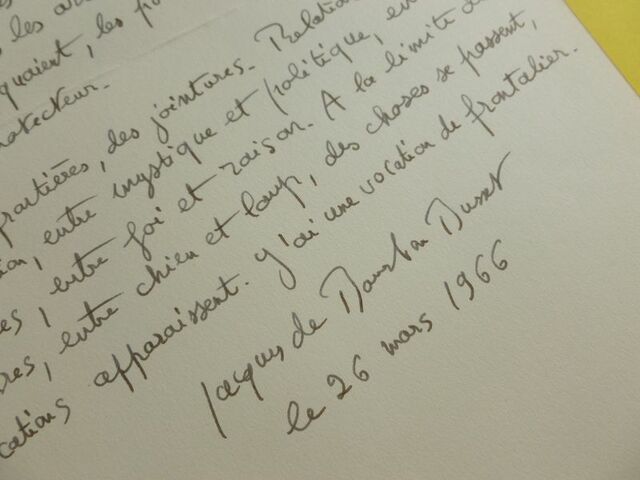 les
quaient, les
protecteur.
frontières, des jointures. Relation
entre mystique et politique, en
entre foi et raison. A la limite de
entre chien et loup, des choses se passent,
apparaissent. J'ai une vocation de frontalier.
Jacques de Bourbon Busset
le 26 mars 1966